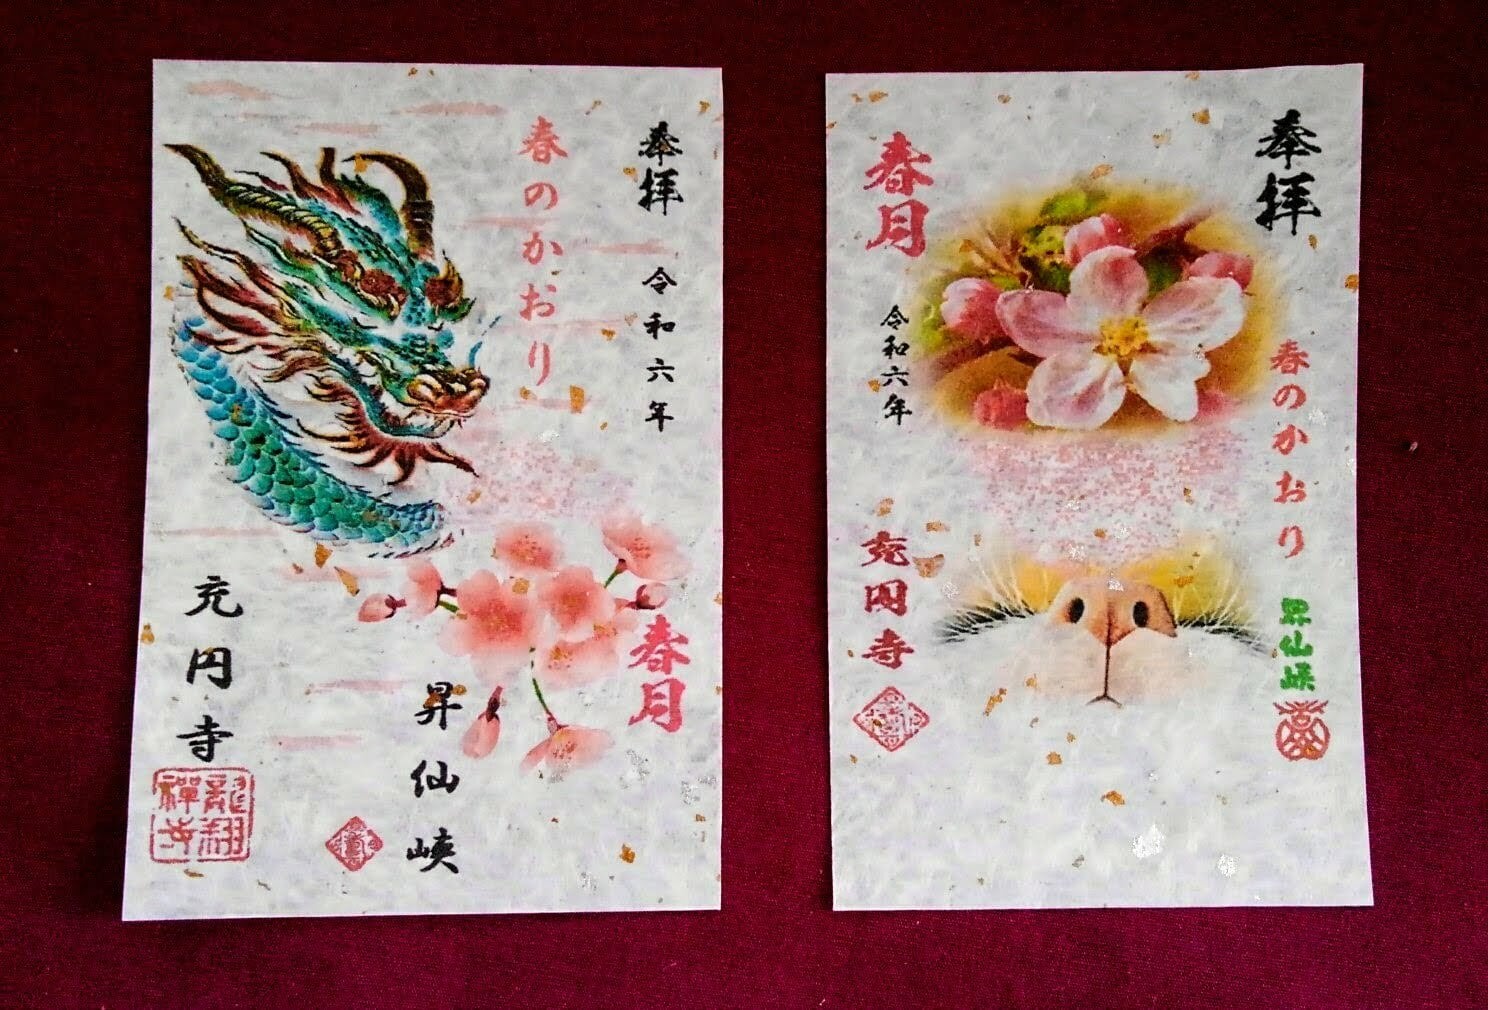 奉拝
令和六年
春のかおり
春月
昇仙峡
充円寺
龍翔
禅寺
奉拝
春のかおり
昇仙峡
春月
令和六年
充円寺